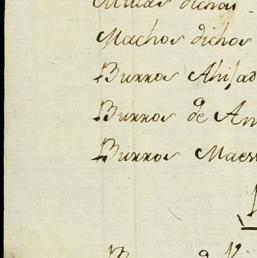 Mulas dichas
Machos dichos
Burros Ahijad
Burros de An
Burros Maes